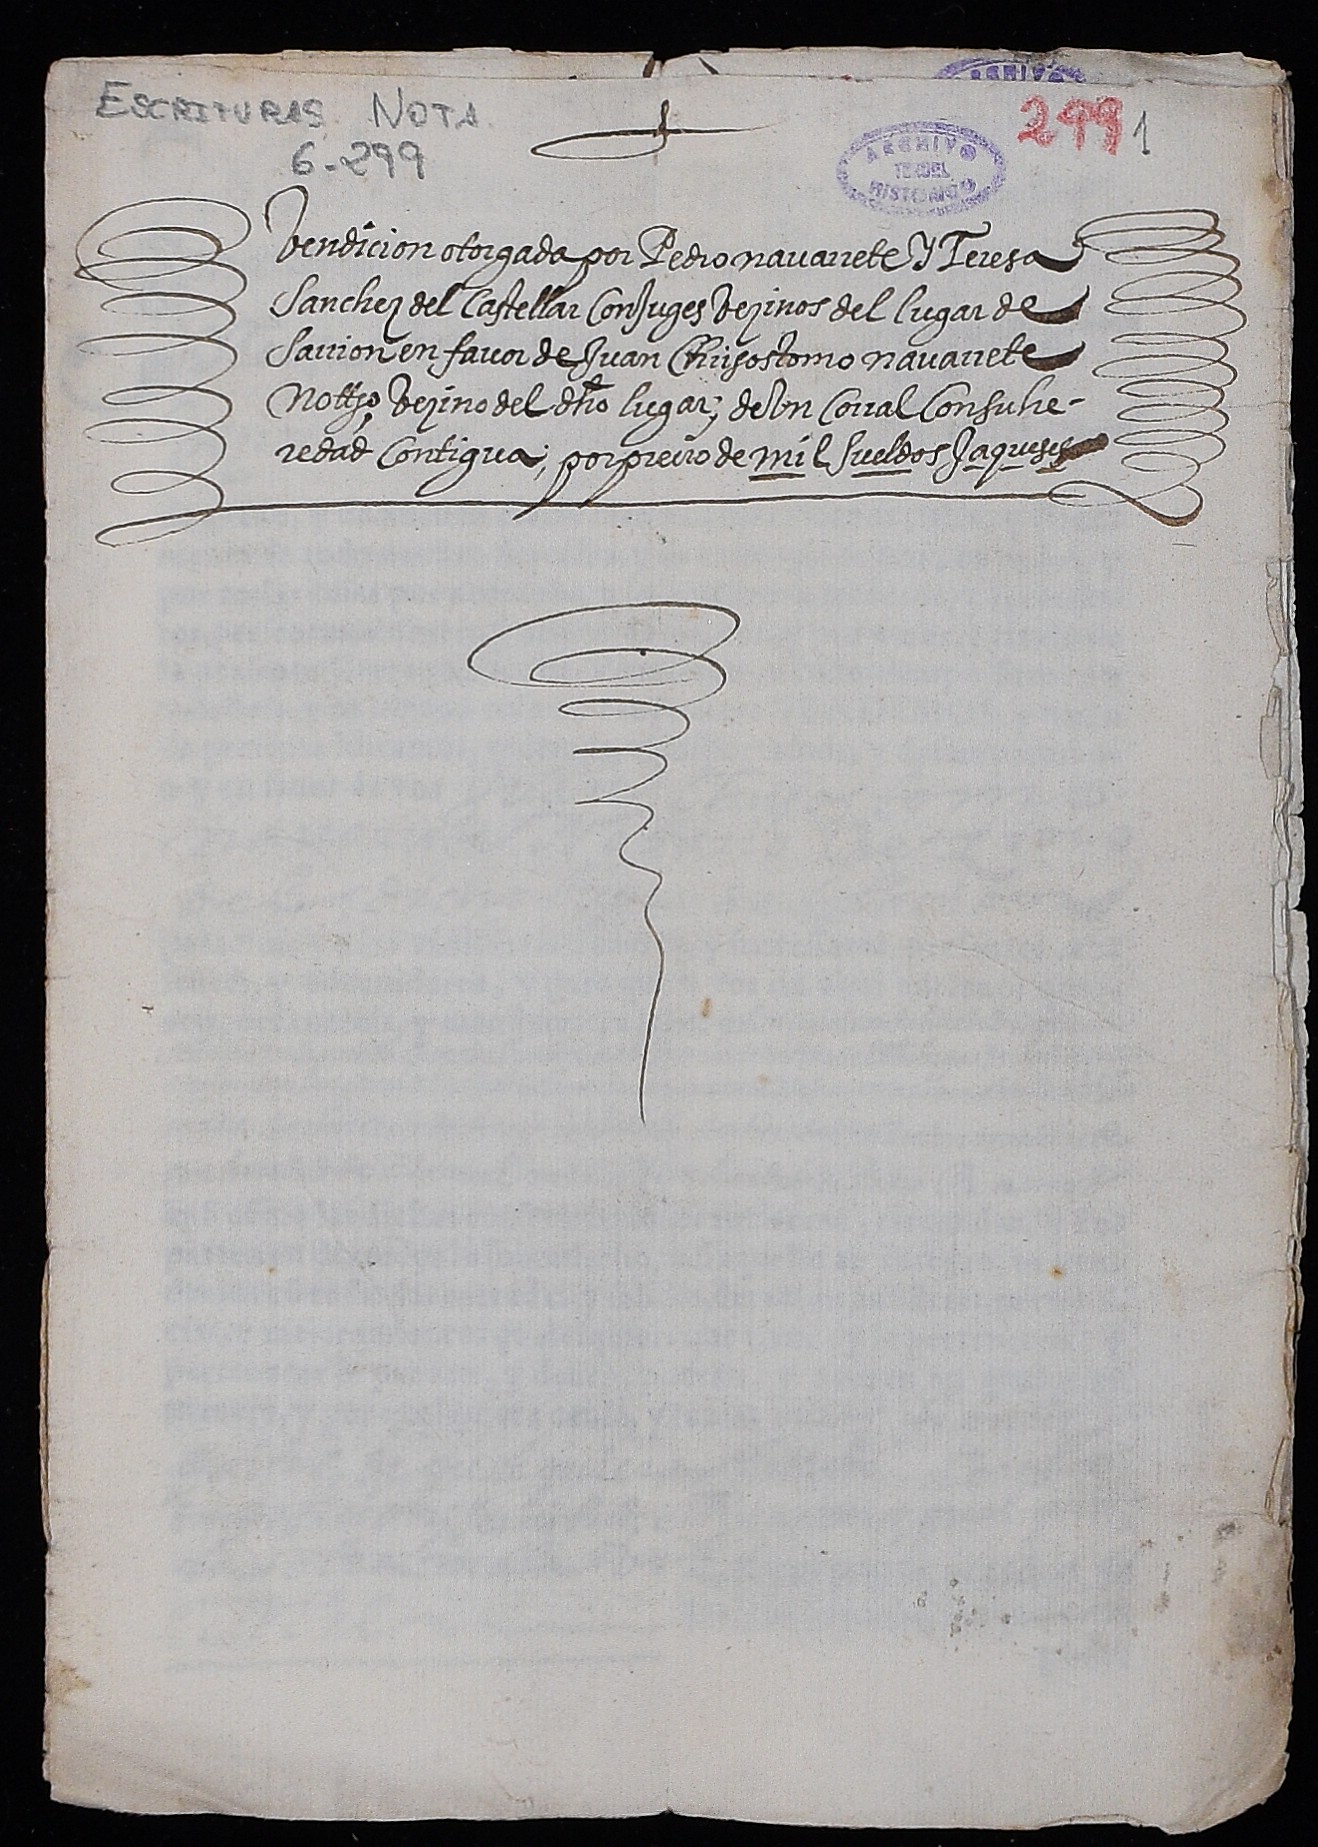 ESCRITURAS NOTA
6-299
299 1
ARCHIVO
TERUEL
HISTORICO
Vendicion otorgada por Pedro nauarrete Y Teresa
Sanchez del Castellar Conjuges Vezinos del lugar de
Sarrion en fauor de Juan Chrisostomo nauarrete
Nottº, Vezino del dho lugar; de Vn Corral Con su he-
redad Contigua; por precio de mil Sueldos Jaqueses